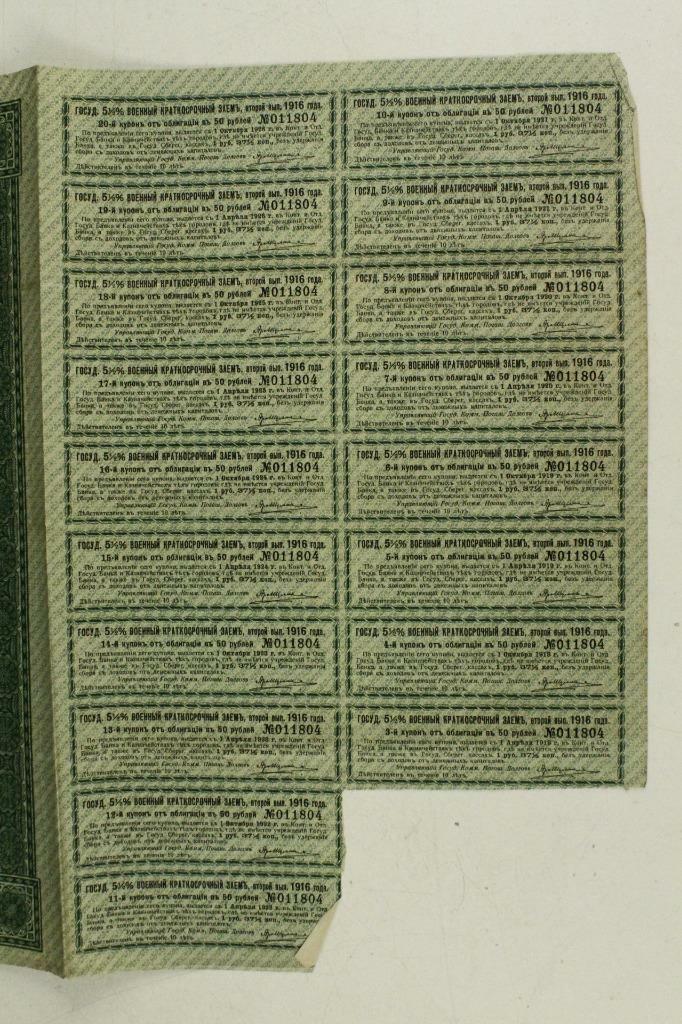 ГОСУД. 5½% ВОЕННЫЙ КРАТКОСРОЧНЫЙ ЗАЕМЪ, второй вып. 1916 года.
20-й купонъ отъ облигаціи въ 50 рублей №011804
По предъявленіи сего купона, выдается съ 1 Октября 1926 г. въ Конт. и Отд.
Госуд. Банка и Казначействахъ тѣхъ городовъ, гдѣ не имѣется учрежденій Госуд.
Банка, а также въ Госуд. Сберег. кассахъ, 1 руб. 37½ коп., безъ удержанія
сбора съ доходовъ отъ денежныхъ капиталовъ.
Управляющій Госуд. Комм. Погаш. Долговъ
Дѣйствителенъ въ теченіе 10 лѣтъ.
ГОСУД. 5½% ВОЕННЫЙ КРАТКОСРОЧНЫЙ ЗАЕМЪ, второй вып. 1916 года.
19-й купонъ отъ облигаціи въ 50 рублей №011804
По предъявленіи сего купона, выдается съ 1 Апрѣля 1926 г. въ Конт. и Отд.
Госуд. Банка и Казначействахъ тѣхъ городовъ, гдѣ не имѣется учрежденій Госуд.
Банка, а также въ Госуд. Сберег. кассахъ, 1 руб. 37½ коп., безъ удержанія
сбора съ доходовъ отъ денежныхъ капиталовъ.
Управляющій Госуд. Комм. Погаш. Долговъ
Дѣйствителенъ въ теченіе 10 лѣтъ.
ГОСУД. 5½% ВОЕННЫЙ КРАТКОСРОЧНЫЙ ЗАЕМЪ, второй вып. 1916 года.
18-й купонъ отъ облигаціи въ 50 рублей №011804
По предъявленіи сего купона, выдается съ 1 Октября 1925 г. въ Конт. и Отд.
Госуд. Банка и Казначействахъ тѣхъ городовъ, гдѣ не имѣется учрежденій Госуд.
Банка, а также въ Госуд. Сберег. кассахъ, 1 руб. 37½ коп., безъ удержанія
сбора съ доходовъ отъ денежныхъ капиталовъ.
Управляющій Госуд. Комм. Погаш. Долговъ
Дѣйствителенъ въ теченіе 10 лѣтъ.
ГОСУД. 5½% ВОЕННЫЙ КРАТКОСРОЧНЫЙ ЗАЕМЪ, второй вып. 1916 года.
17-й купонъ отъ облигаціи въ 50 рублей №011804
По предъявленіи сего купона, выдается съ 1 Апрѣля 1925 г. въ Конт. и Отд.
Госуд. Банка и Казначействахъ тѣхъ городовъ, гдѣ не имѣется учрежденій Госуд.
Банка, а также въ Госуд. Сберег. кассахъ, 1 руб. 37½ коп., безъ удержанія
сбора съ доходовъ отъ денежныхъ капиталовъ.
Управляющій Госуд. Комм. Погаш. Долговъ
Дѣйствителенъ въ теченіе 10 лѣтъ.
ГОСУД. 5½% ВОЕННЫЙ КРАТКОСРОЧНЫЙ ЗАЕМЪ, второй вып. 1916 года.
16-й купонъ отъ облигаціи въ 50 рублей №011804
По предъявленіи сего купона, выдается съ 1 Октября 1924 г. въ Конт. и Отд.
Госуд. Банка и Казначействахъ тѣхъ городовъ, гдѣ не имѣется учрежденій Госуд.
Банка, а также въ Госуд. Сберег. кассахъ, 1 руб. 37½ коп., безъ удержанія
сбора съ доходовъ отъ денежныхъ капиталовъ.
Управляющій Госуд. Комм. Погаш. Долговъ
Дѣйствителенъ въ теченіе 10 лѣтъ.
ГОСУД. 5½% ВОЕННЫЙ КРАТКОСРОЧНЫЙ ЗАЕМЪ, второй вып. 1916 года.
15-й купонъ отъ облигаціи въ 50 рублей №011804
По предъявленіи сего купона, выдается съ 1 Апрѣля 1924 г. въ Конт. и Отд.
Госуд. Банка и Казначействахъ тѣхъ городовъ, гдѣ не имѣется учрежденій Госуд.
Банка, а также въ Госуд. Сберег. кассахъ, 1 руб. 37½ коп., безъ удержанія
сбора съ доходовъ отъ денежныхъ капиталовъ.
Управляющій Госуд. Комм. Погаш. Долговъ
Дѣйствителенъ въ теченіе 10 лѣтъ.
ГОСУД. 5½% ВОЕННЫЙ КРАТКОСРОЧНЫЙ ЗАЕМЪ, второй вып. 1916 года.
14-й купонъ отъ облигаціи въ 50 рублей №011804
По предъявленіи сего купона, выдается съ 1 Октября 1923 г. въ Конт. и Отд.
Госуд. Банка и Казначействахъ тѣхъ городовъ, гдѣ не имѣется учрежденій Госуд.
Банка, а также въ Госуд. Сберег. кассахъ, 1 руб. 37½ коп., безъ удержанія
сбора съ доходовъ отъ денежныхъ капиталовъ.
Управляющій Госуд. Комм. Погаш. Долговъ
Дѣйствителенъ въ теченіе 10 лѣтъ.
ГОСУД. 5½% ВОЕННЫЙ КРАТКОСРОЧНЫЙ ЗАЕМЪ, второй вып. 1916 года.
13-й купонъ отъ облигаціи въ 50 рублей №011804
По предъявленіи сего купона, выдается съ 1 Апрѣля 1923 г. въ Конт. и Отд.
Госуд. Банка и Казначействахъ тѣхъ городовъ, гдѣ не имѣется учрежденій Госуд.
Банка, а также въ Госуд. Сберег. кассахъ, 1 руб. 37½ коп., безъ удержанія
сбора съ доходовъ отъ денежныхъ капиталовъ.
Управляющій Госуд. Комм. Погаш. Долговъ
Дѣйствителенъ въ теченіе 10 лѣтъ.
ГОСУД. 5½% ВОЕННЫЙ КРАТКОСРОЧНЫЙ ЗАЕМЪ, второй вып. 1916 года.
12-й купонъ отъ облигаціи въ 50 рублей №011804
По предъявленіи сего купона, выдается съ 1 Октября 1922 г. въ Конт. и Отд.
Госуд. Банка и Казначействахъ тѣхъ городовъ, гдѣ не имѣется учрежденій Госуд.
Банка, а также въ Госуд. Сберег. кассахъ, 1 руб. 37½ коп., безъ удержанія
сбора съ доходовъ отъ денежныхъ капиталовъ.
Управляющій Госуд. Комм. Погаш. Долговъ
Дѣйствителенъ въ теченіе 10 лѣтъ.
ГОСУД. 5½% ВОЕННЫЙ КРАТКОСРОЧНЫЙ ЗАЕМЪ, второй вып. 1916 года.
11-й купонъ отъ облигаціи въ 50 рублей №011804
По предъявленіи сего купона, выдается съ 1 Апрѣля 1922 г. въ Конт. и Отд.
Госуд. Банка и Казначействахъ тѣхъ городовъ, гдѣ не имѣется учрежденій Госуд.
Банка, а также въ Госуд. Сберег. кассахъ, 1 руб. 37½ коп., безъ удержанія
сбора съ доходовъ отъ денежныхъ капиталовъ.
Управляющій Госуд. Комм. Погаш. Долговъ
Дѣйствителенъ въ теченіе 10 лѣтъ.
ГОСУД. 5½% ВОЕННЫЙ КРАТКОСРОЧНЫЙ ЗАЕМЪ, второй вып. 1916 года.
10-й купонъ отъ облигаціи въ 50 рублей №011804
По предъявленіи сего купона, выдается съ 1 Октября 1921 г. въ Конт. и Отд.
Госуд. Банка и Казначействахъ тѣхъ городовъ, гдѣ не имѣется учрежденій Госуд.
Банка, а также въ Госуд. Сберег. кассахъ, 1 руб. 37½ коп., безъ удержанія
сбора съ доходовъ отъ денежныхъ капиталовъ.
Управляющій Госуд. Комм. Погаш. Долговъ
Дѣйствителенъ въ теченіе 10 лѣтъ.
ГОСУД. 5½% ВОЕННЫЙ КРАТКОСРОЧНЫЙ ЗАЕМЪ, второй вып. 1916 года.
9-й купонъ отъ облигаціи въ 50 рублей №011804
По предъявленіи сего купона, выдается съ 1 Апрѣля 1921 г. въ Конт. и Отд.
Госуд. Банка и Казначействахъ тѣхъ городовъ, гдѣ не имѣется учрежденій Госуд.
Банка, а также въ Госуд. Сберег. кассахъ, 1 руб. 37½ коп., безъ удержанія
сбора съ доходовъ отъ денежныхъ капиталовъ.
Управляющій Госуд. Комм. Погаш. Долговъ
Дѣйствителенъ въ теченіе 10 лѣтъ.
ГОСУД. 5½% ВОЕННЫЙ КРАТКОСРОЧНЫЙ ЗАЕМЪ, второй вып. 1916 года.
8-й купонъ отъ облигаціи въ 50 рублей №011804
По предъявленіи сего купона, выдается съ 1 Октября 1920 г. въ Конт. и Отд.
Госуд. Банка и Казначействахъ тѣхъ городовъ, гдѣ не имѣется учрежденій Госуд.
Банка, а также въ Госуд. Сберег. кассахъ, 1 руб. 37½ коп., безъ удержанія
сбора съ доходовъ отъ денежныхъ капиталовъ.
Управляющій Госуд. Комм. Погаш. Долговъ
Дѣйствителенъ въ теченіе 10 лѣтъ.
ГОСУД. 5½% ВОЕННЫЙ КРАТКОСРОЧНЫЙ ЗАЕМЪ, второй вып. 1916 года.
7-й купонъ отъ облигаціи въ 50 рублей №011804
По предъявленіи сего купона, выдается съ 1 Апрѣля 1920 г. въ Конт. и Отд.
Госуд. Банка и Казначействахъ тѣхъ городовъ, гдѣ не имѣется учрежденій Госуд.
Банка, а также въ Госуд. Сберег. кассахъ, 1 руб. 37½ коп., безъ удержанія
сбора съ доходовъ отъ денежныхъ капиталовъ.
Управляющій Госуд. Комм. Погаш. Долговъ
Дѣйствителенъ въ теченіе 10 лѣтъ.
ГОСУД. 5½% ВОЕННЫЙ КРАТКОСРОЧНЫЙ ЗАЕМЪ, второй вып. 1916 года.
6-й купонъ отъ облигаціи въ 50 рублей №011804
По предъявленіи сего купона, выдается съ 1 Октября 1919 г. въ Конт. и Отд.
Госуд. Банка и Казначействахъ тѣхъ городовъ, гдѣ не имѣется учрежденій Госуд.
Банка, а также въ Госуд. Сберег. кассахъ, 1 руб. 37½ коп., безъ удержанія
сбора съ доходовъ отъ денежныхъ капиталовъ.
Управляющій Госуд. Комм. Погаш. Долговъ
Дѣйствителенъ въ теченіе 10 лѣтъ.
ГОСУД. 5½% ВОЕННЫЙ КРАТКОСРОЧНЫЙ ЗАЕМЪ, второй вып. 1916 года.
5-й купонъ отъ облигаціи въ 50 рублей №011804
По предъявленіи сего купона, выдается съ 1 Апрѣля 1919 г. въ Конт. и Отд.
Госуд. Банка и Казначействахъ тѣхъ городовъ, гдѣ не имѣется учрежденій Госуд.
Банка, а также въ Госуд. Сберег. кассахъ, 1 руб. 37½ коп., безъ удержанія
сбора съ доходовъ отъ денежныхъ капиталовъ.
Управляющій Госуд. Комм. Погаш. Долговъ
Дѣйствителенъ въ теченіе 10 лѣтъ.
ГОСУД. 5½% ВОЕННЫЙ КРАТКОСРОЧНЫЙ ЗАЕМЪ, второй вып. 1916 года.
4-й купонъ отъ облигаціи въ 50 рублей №011804
По предъявленіи сего купона, выдается съ 1 Октября 1918 г. въ Конт. и Отд.
Госуд. Банка и Казначействахъ тѣхъ городовъ, гдѣ не имѣется учрежденій Госуд.
Банка, а также въ Госуд. Сберег. кассахъ, 1 руб. 37½ коп., безъ удержанія
сбора съ доходовъ отъ денежныхъ капиталовъ.
Управляющій Госуд. Комм. Погаш. Долговъ
Дѣйствителенъ въ теченіе 10 лѣтъ.
ГОСУД. 5½% ВОЕННЫЙ КРАТКОСРОЧНЫЙ ЗАЕМЪ, второй вып. 1916 года.
3-й купонъ отъ облигаціи въ 50 рублей №011804
По предъявленіи сего купона, выдается съ 1 Апрѣля 1918 г. въ Конт. и Отд.
Госуд. Банка и Казначействахъ тѣхъ городовъ, гдѣ не имѣется учрежденій Госуд.
Банка, а также въ Госуд. Сберег. кассахъ, 1 руб. 37½ коп., безъ удержанія
сбора съ доходовъ отъ денежныхъ капиталовъ.
Управляющій Госуд. Комм. Погаш. Долговъ
Дѣйствителенъ въ теченіе 10 лѣтъ.